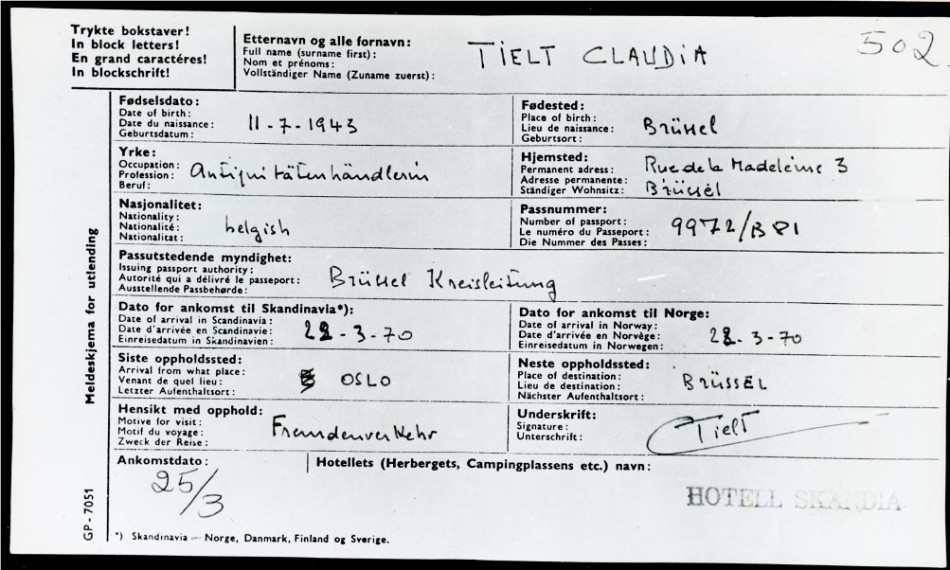 Trykte bokstaver!
In block letters!
En grand caractéres!
In blockschrift!
Etternavn og alle fornavn:
Full name (surname first):
Nom et prénoms:
Vollständiger Name (Zuname zuerst):
TIELT CLAUDiA
502
Fødselsdato:
Date of birth:
Date du naissance:
Geburtsdatum:
11-7-1943
Fødested:
Place of birth:
Lieu de naissance:
Geburtsort:
Brüssel
Yrke:
Occupation:
Profession:
Beruf:
Antiquitätenhändlerin
Hjemsted:
Permanent adress:
Adresse permanente:
Ständiger Wohnsitz:
Rue de la Madeleine 3
Brüssel
Nasjonalitet:
Nationality:
Nationalité:
Nationalitat:
belgish
Passnummer:
Number of passport:
Le numéro du Passeport:
Die Nummer des Passes:
9972/B81
Passutstedende myndighet:
Issuing passport authority:
Autorité qui a délivré le passeport:
Ausstellende Passbehørde:
Brüssel Kreisleitung
Dato for ankomst til Skandinavia*):
Date of arrival in Scandinavia:
Date d'arrivée en Scandinavie:
Einreisedatum in Skandinavien:
22-3-70
Dato for ankomst til Norge:
Date of arrival in Norway:
Date d'arrivée en Norvège:
Einreisedatum in Norwegen:
22-3-70
Siste oppholdssted:
Arrival from what place:
Venant de quel lieu:
Letzter Aufenthaltsort:
OSLO
Neste oppholdssted:
Place of destination:
Lieu de destination:
Nächster Aufenthaltsort:
BRÜSSEL
Hensikt med opphold:
Motive for visit:
Motif du voyage:
Zweck der Reise:
Fremdenverkehr
Underskrift:
Signature:
Unterschrift:
Tielt
Ankomstdato:
25/3
Hotellets (Herbergets, Campingplassens etc.) navn:
HOTELL SKANDIA
*) Skandinavia — Norge, Danmark, Finland og Sverige.
Meldeskjema for utlending
GP-7051